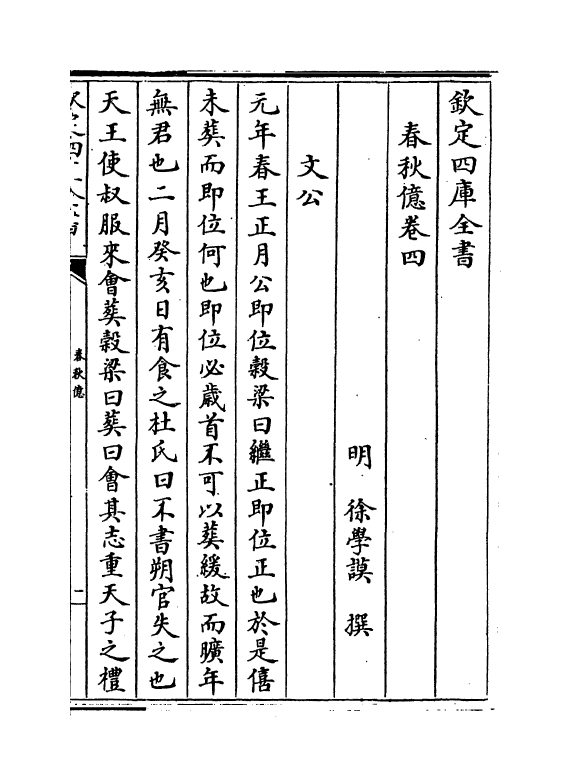 欽定四庫全書
春秋億卷四
明 徐學謨 撰
文公
元年春王正月公即位穀梁曰繼正即位正也於是僖
未葬而即位何也即位必歲首不可以葬緩故而曠年
無君也二月癸亥日有食之杜氏曰不書朔官失之也
天王使叔服來會葬穀梁曰葬曰會其志重天子之禮
春秋億